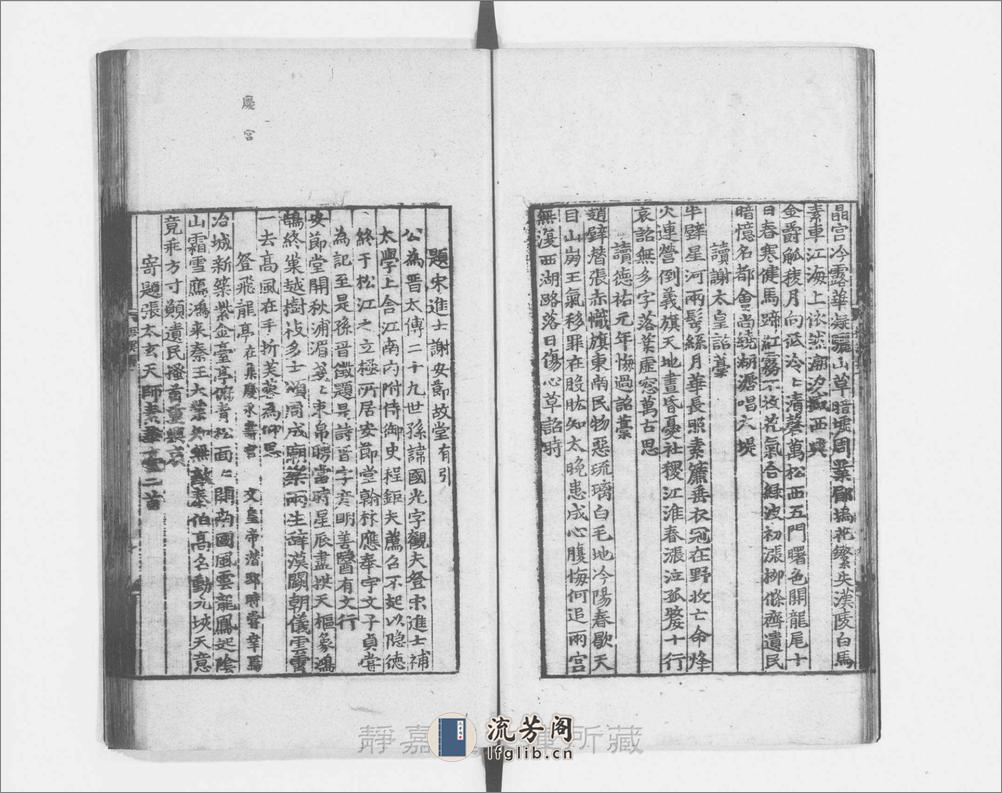 晶宮冷露華凝驪山草暗壞周業郿塢花繁失漢陵白馬
素車江海上依然潮汐撼西興
金爵觚稜月向低泠泠清磬萬松西五門曙色開龍尾十
日春寒健馬蹄紅霧不收花氣合綠波初漲柳條齊遺民
暗憶名都會尚繞湖漘唱大堤
讀謝太皇詔藁
半壁星河兩鬢絲月華長照素簾垂衣冠在野收亡命烽
火連營倒義旗天地晝昏憂社稷江淮春漲泣孤嫠十行
哀詔無多字落葉虛窓萬古思
讀德祐元年悔過詔藁
趙辟替張赤幟旗東南民物惡琉璃白毛地冷陽春歇天
目山崩王氣移罪在股肱知太晚患成心腹悔何追兩宮
無復西湖路落日傷心草詔時
題宋進士謝安節故堂有引
公為晉太傅二十九世孫諱國光字觀夫登宋進士補
太學上舍江南內附侍御史程鉅夫薦召不起以隱德
終于松江之立極所居安節堂翰林應奉字文子貞嘗
為記至是孫晉徵題是詩晉字彥明善醫有文行
安節堂開秋浦湄蔞上束帛曉當時星辰盡拱天樞象鴻
鵠終巢越樹枝多士頌周成廟樂兩生辭漢闕朝儀雲霄
一去高風在手折芙蓉為仰思
登飛龍亭 在集慶永壽宮 文皇帝潛邸時嘗幸焉
冶城新築紫金臺亭俯青松面面開南國風雲龍鳳起陰
山霜雪鴈鴻來秦王大業知無敵泰伯高名動九垓天意
竟乘方寸顛遺民稽首重興哀
寄題張太玄天師素華臺二首
慶宮
靜嘉 所藏
流芳阁
lfglib.cn